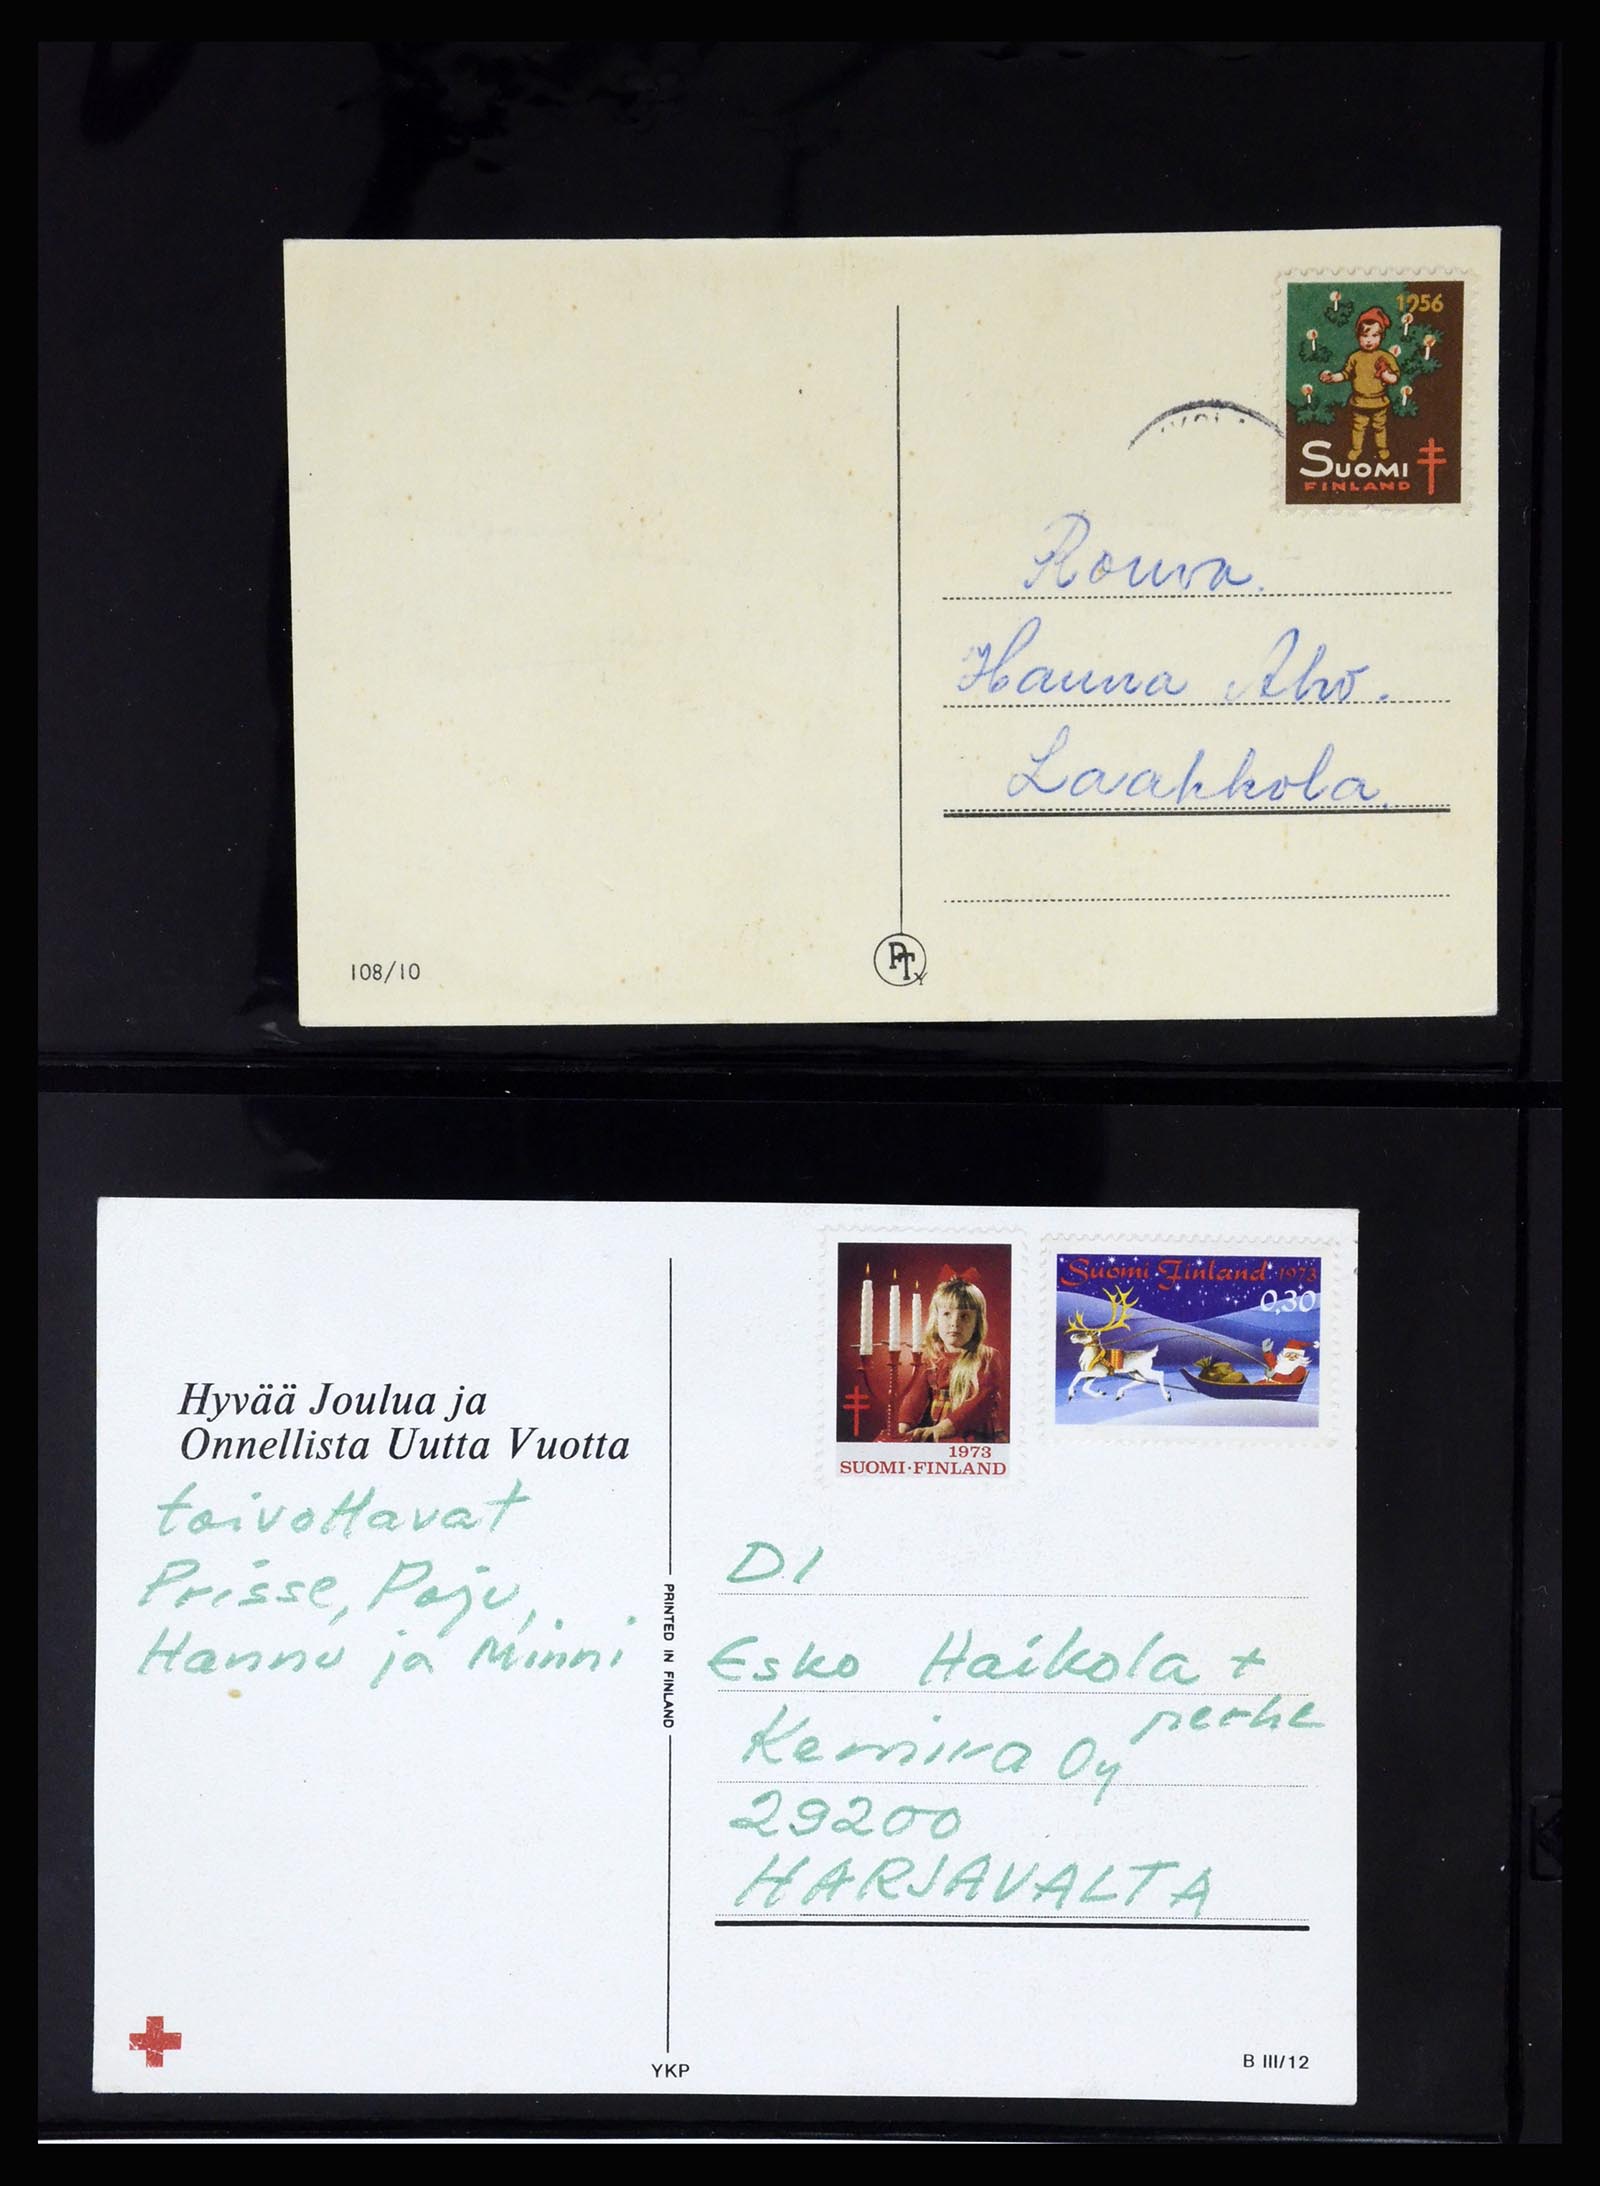 1956
SUOMI
FINLAND
Rouva.
Hanna Aho.
Laakkola.
108/10
PTY
Suomi Finland 1973
0,30
1973
SUOMI·FINLAND
Hyvää Joulua ja
Onnellista Uutta Vuotta
toivottavat
Prisse, Poju,
Hannu ja Minni
PRINTED IN FINLAND
DI
Esko Haikola +
perhe
Kemira Oy
29200
HARJAVALTA
YKP
B III/12